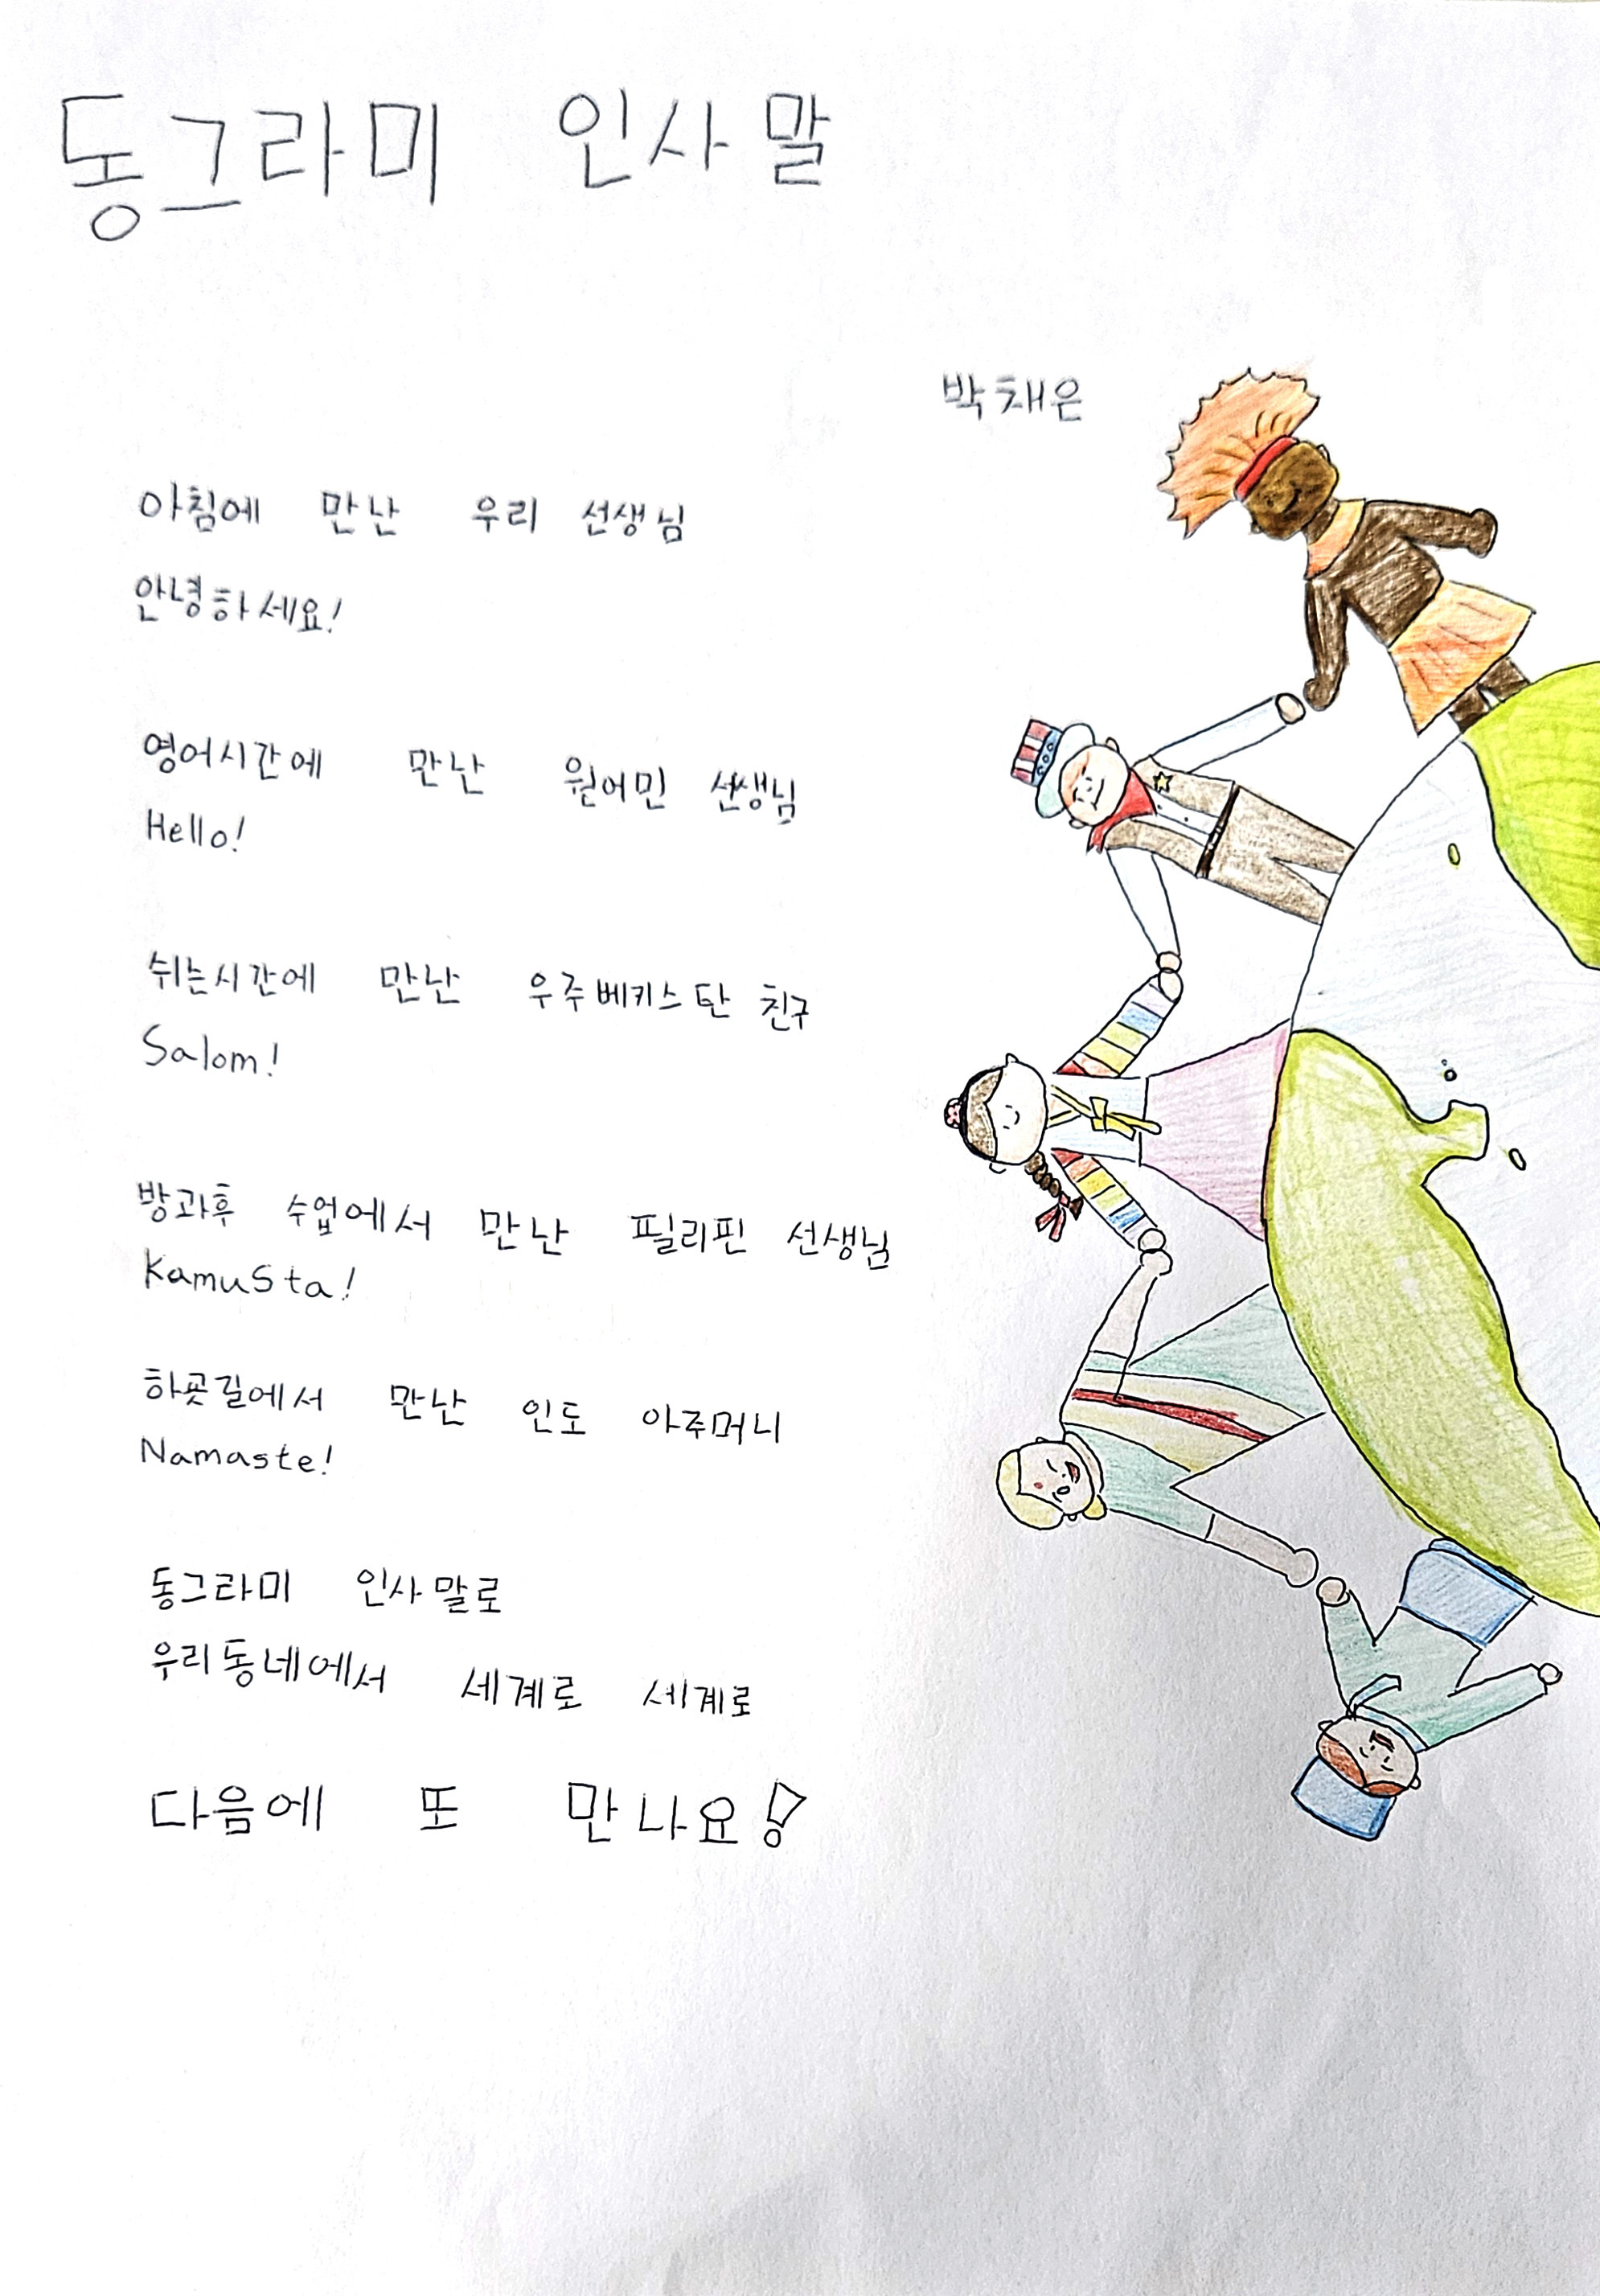 동그라미 인사말
박채은
아침에 만난 우리 선생님
안녕하세요!
영어시간에 만난 원어민 선생님
Hello!
쉬는시간에 만난 우주베키스탄 친구
Salom!
방과후 수업에서 만난 필리핀 선생님
Kamusta!
하굣길에서 만난 인도 아주머니
Namaste!
동그라미 인사말로
우리동네에서 세계로 세계로
다음에 또 만나요!